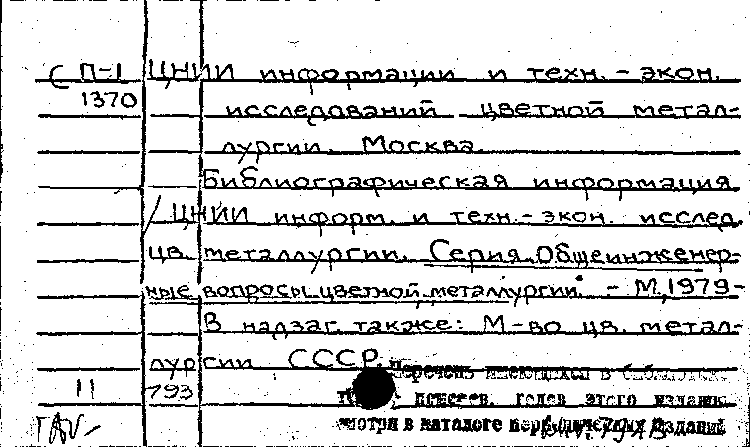 С П-1 ЦНИИ информации и техн. - экон.
1370 исследований цветной метал-
лургии. Москва.
Библиографическая информация
/ ЦНИИ информ. и техн. - экон. исслед.
цв. металлургии. Серия „Общеинженер-
ные вопросы цветной металлургии" - М, 1979-
В надзаг. также: М-во цв. метал-
лургии СССР.
Перечень имеющихся в библиотеке
11 793 этого издания
смотри в каталоге периодических изданий